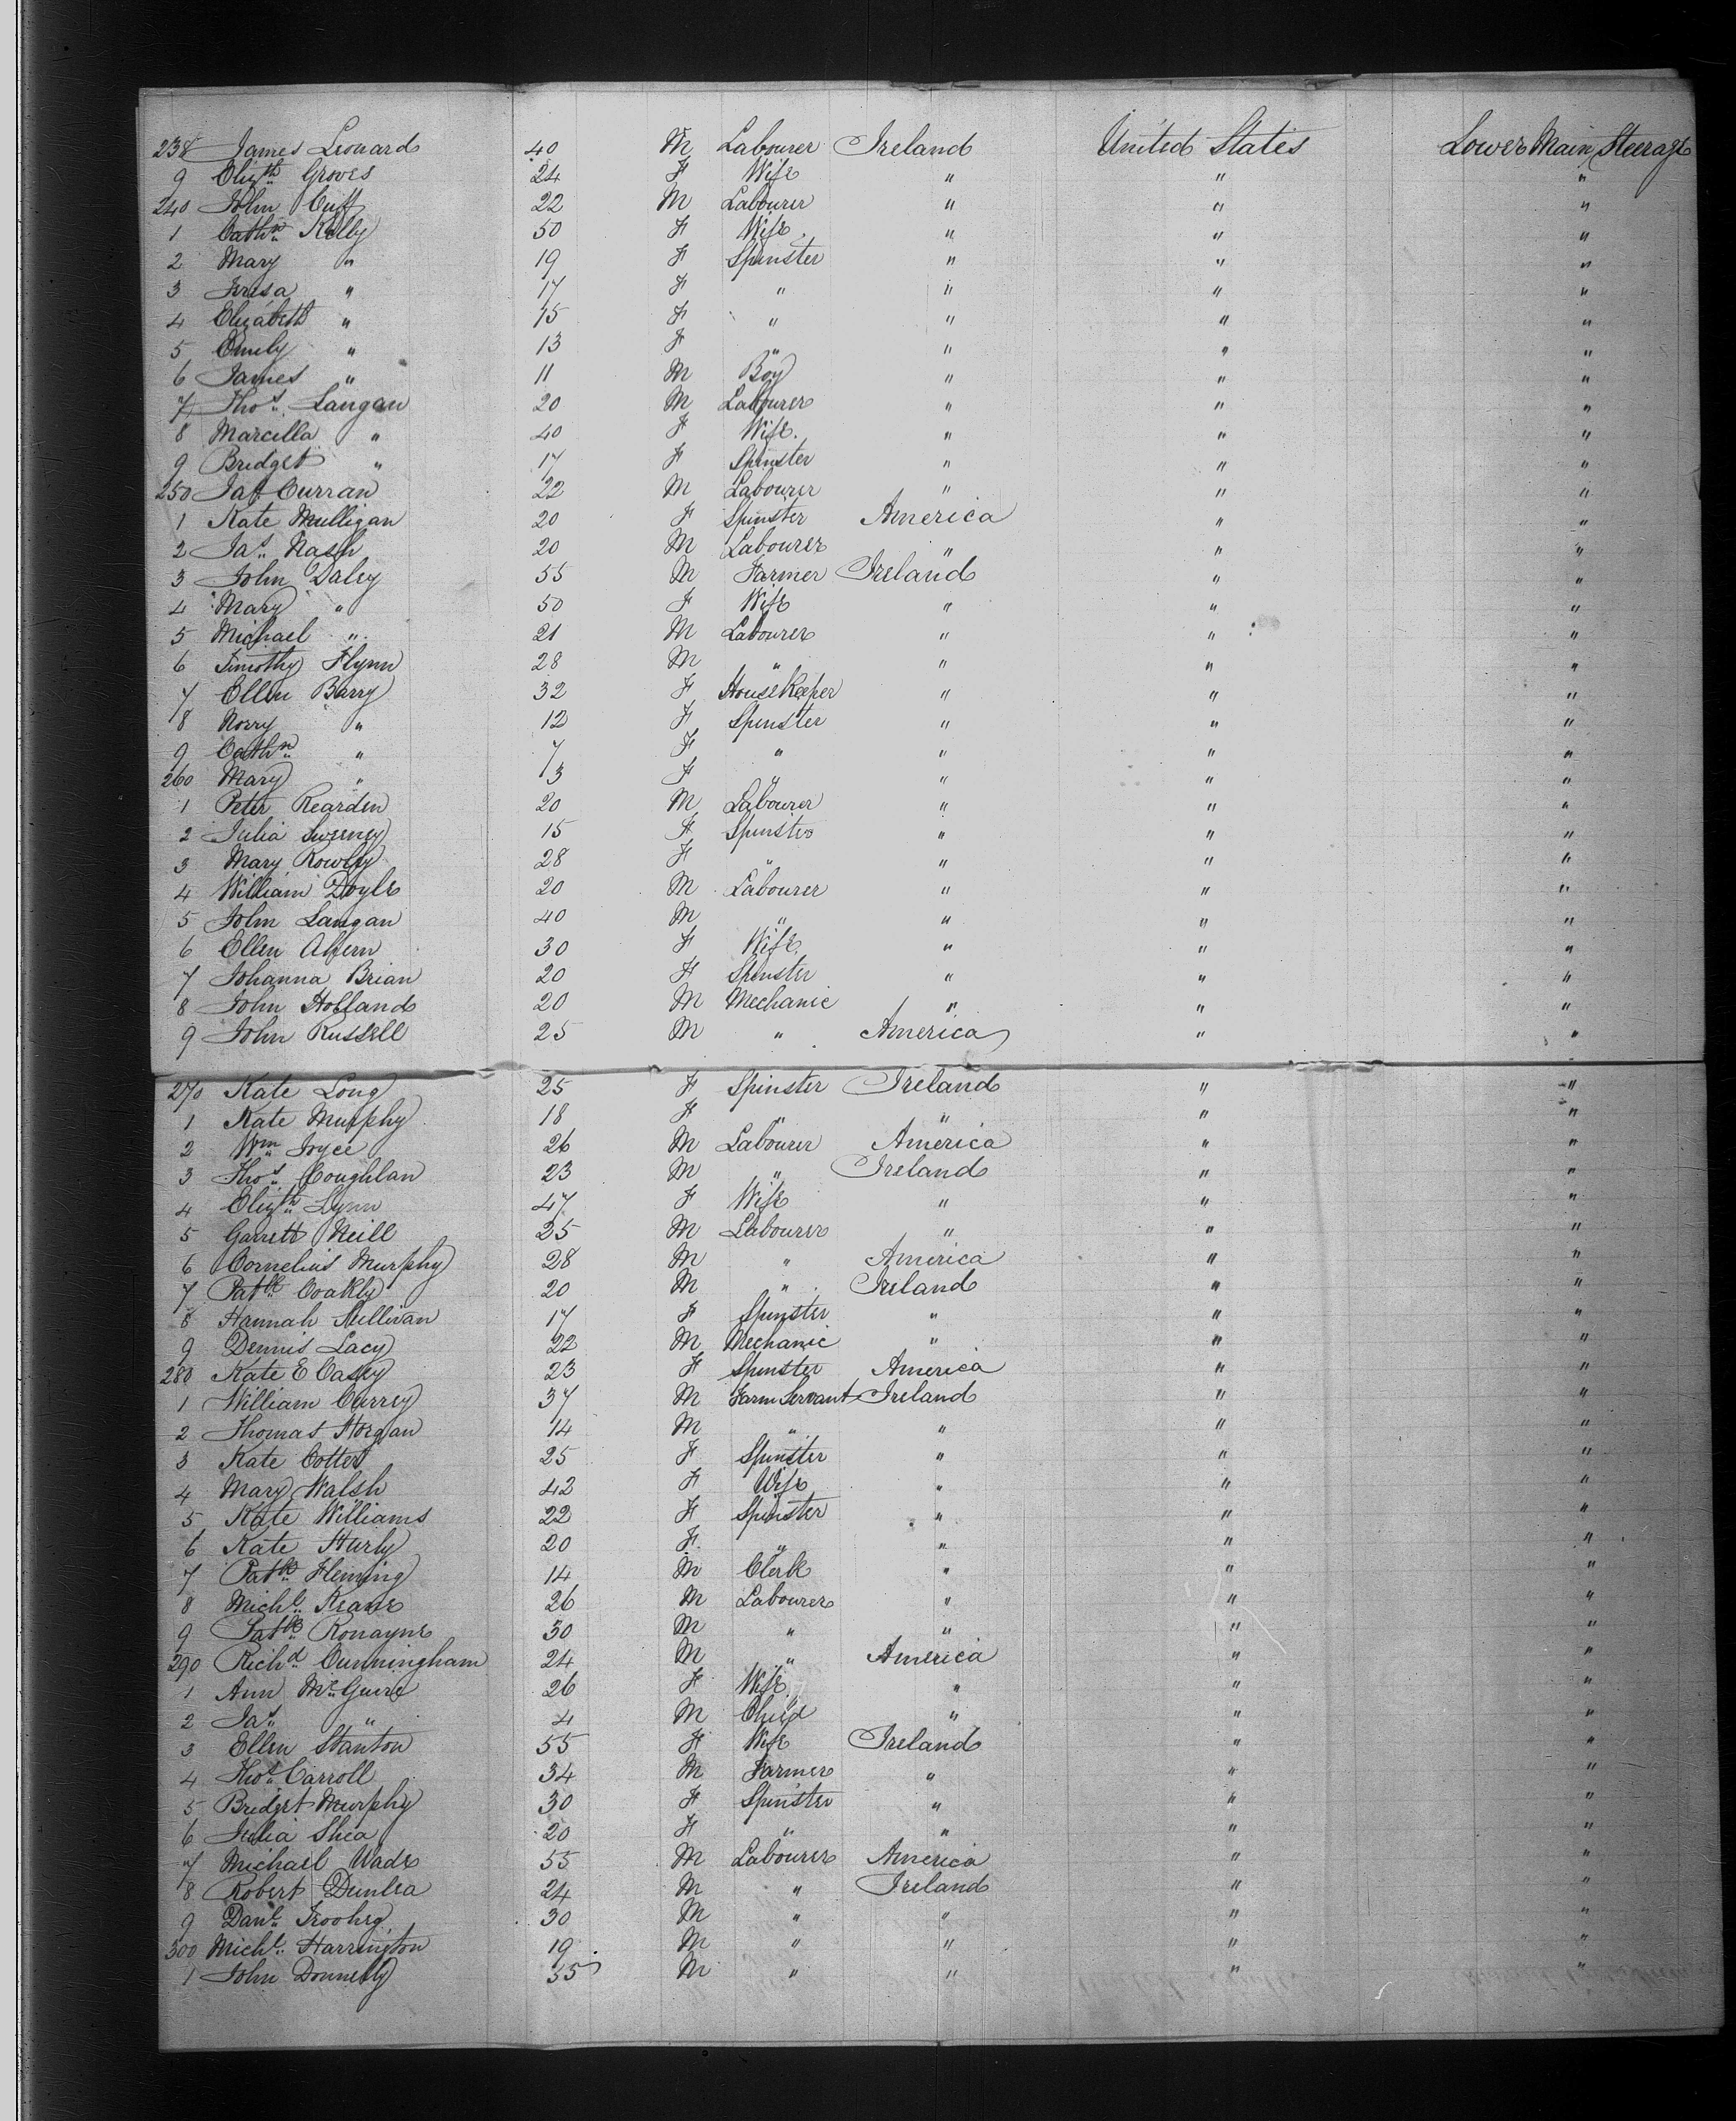 238 James Leonard 40 M Labourer Ireland United States Lower Main Steerage
9 Elizth Groves 24 F Wife " " "
240 John Cuff 22 M Labourer " " "
1 Cathn Kelly 50 F Wife " " "
2 Mary " 19 F Spinster " " "
3 Teresa " 17 F " " " "
4 Elizabeth " 15 F " " " "
5 Emily " 13 F " " " "
6 James " 11 M Boy " " "
7 Thos. Langan 20 M Labourer " " "
8 Marcella " 40 F Wife. " " "
9 Bridget " 17 F Spinster " " "
250 Jas Curran 22 M Labourer " " "
1 Kate Mulligan 20 F Spinster America " "
2 Jas. Nash 20 M Labourer " " "
3 John Daley 55 M Farmer Ireland " "
4 Mary " 50 F Wife " " "
5 Michael " 21 M Labourer " " "
6 Timothy Flynn 28 M " " " "
7 Ellen Barry 32 F HouseKeeper " " "
8 Norry " 12 F Spinster " " "
9 Cathn " 7 F " " " "
260 Mary " 3 F " " " "
1 Peter Rearden 20 M Labourer " " "
2 Julia Sweeney 15 F Spinster " " "
3 Mary Rowley 28 F " " " "
4 William Doyle 20 M Labourer " " "
5 John Langan 40 M " " " "
6 Ellen Ahern 30 F Wife. " " "
7 Johanna Brian 20 F Spinster " " "
8 John Holland 20 M Mechanic " " "
9 John Russell 25 M " America " "
270 Kate Long 25 F Spinster Ireland " "
1 Kate Murphy 18 F " " " "
2 Wm Joyce 26 M Labourer America " "
3 Thos. Coughlan 23 M " Ireland " "
4 Elizth Lynn 47 F Wife " " "
5 Garrett Neill 25 M Labourer " " "
6 Cornelius Murphy 28 M " America " "
7 Patk Coakly 20 M " Ireland " "
8 Hannah Sullivan 17 F Spinster " " "
9 Dennis Lacy 22 M Mechanic " " "
280 Kate E Casey 23 F Spinster America " "
1 William Currey 37 M Farm Servant Ireland " "
2 Thomas Horgan 14 M " " " "
3 Kate Cotter 25 F Spinster " " "
4 Mary Walsh 42 F Wife " " "
5 Kate Williams 22 F Spinster " " "
6 Kate Hurly 20 F " " " "
7 Patk Fleming 14 M Clerk " " "
8 Michl. Keane 26 M Labourer " " "
9 Patk Ronayne 30 M " " " "
290 Richd Cunningham 24 M " America " "
1 Ann McGuire 26 F Wife " " "
2 Jas. " 4 M Child " " "
3 Ellen Stanton 55 F Wife Ireland " "
4 Thos Carroll 34 M Farmer " " "
5 Bridget Murphy 30 F Spinster " " "
6 Julia Shea 20 F " " " "
7 Michael Wade 55 M Labourer America " "
8 Robert Dunlea 24 M " Ireland " "
9 Danl. 30 M " " " "
300 Michl. Harrington 19 M " " " "
1 John Donnelly 35 M " " " "